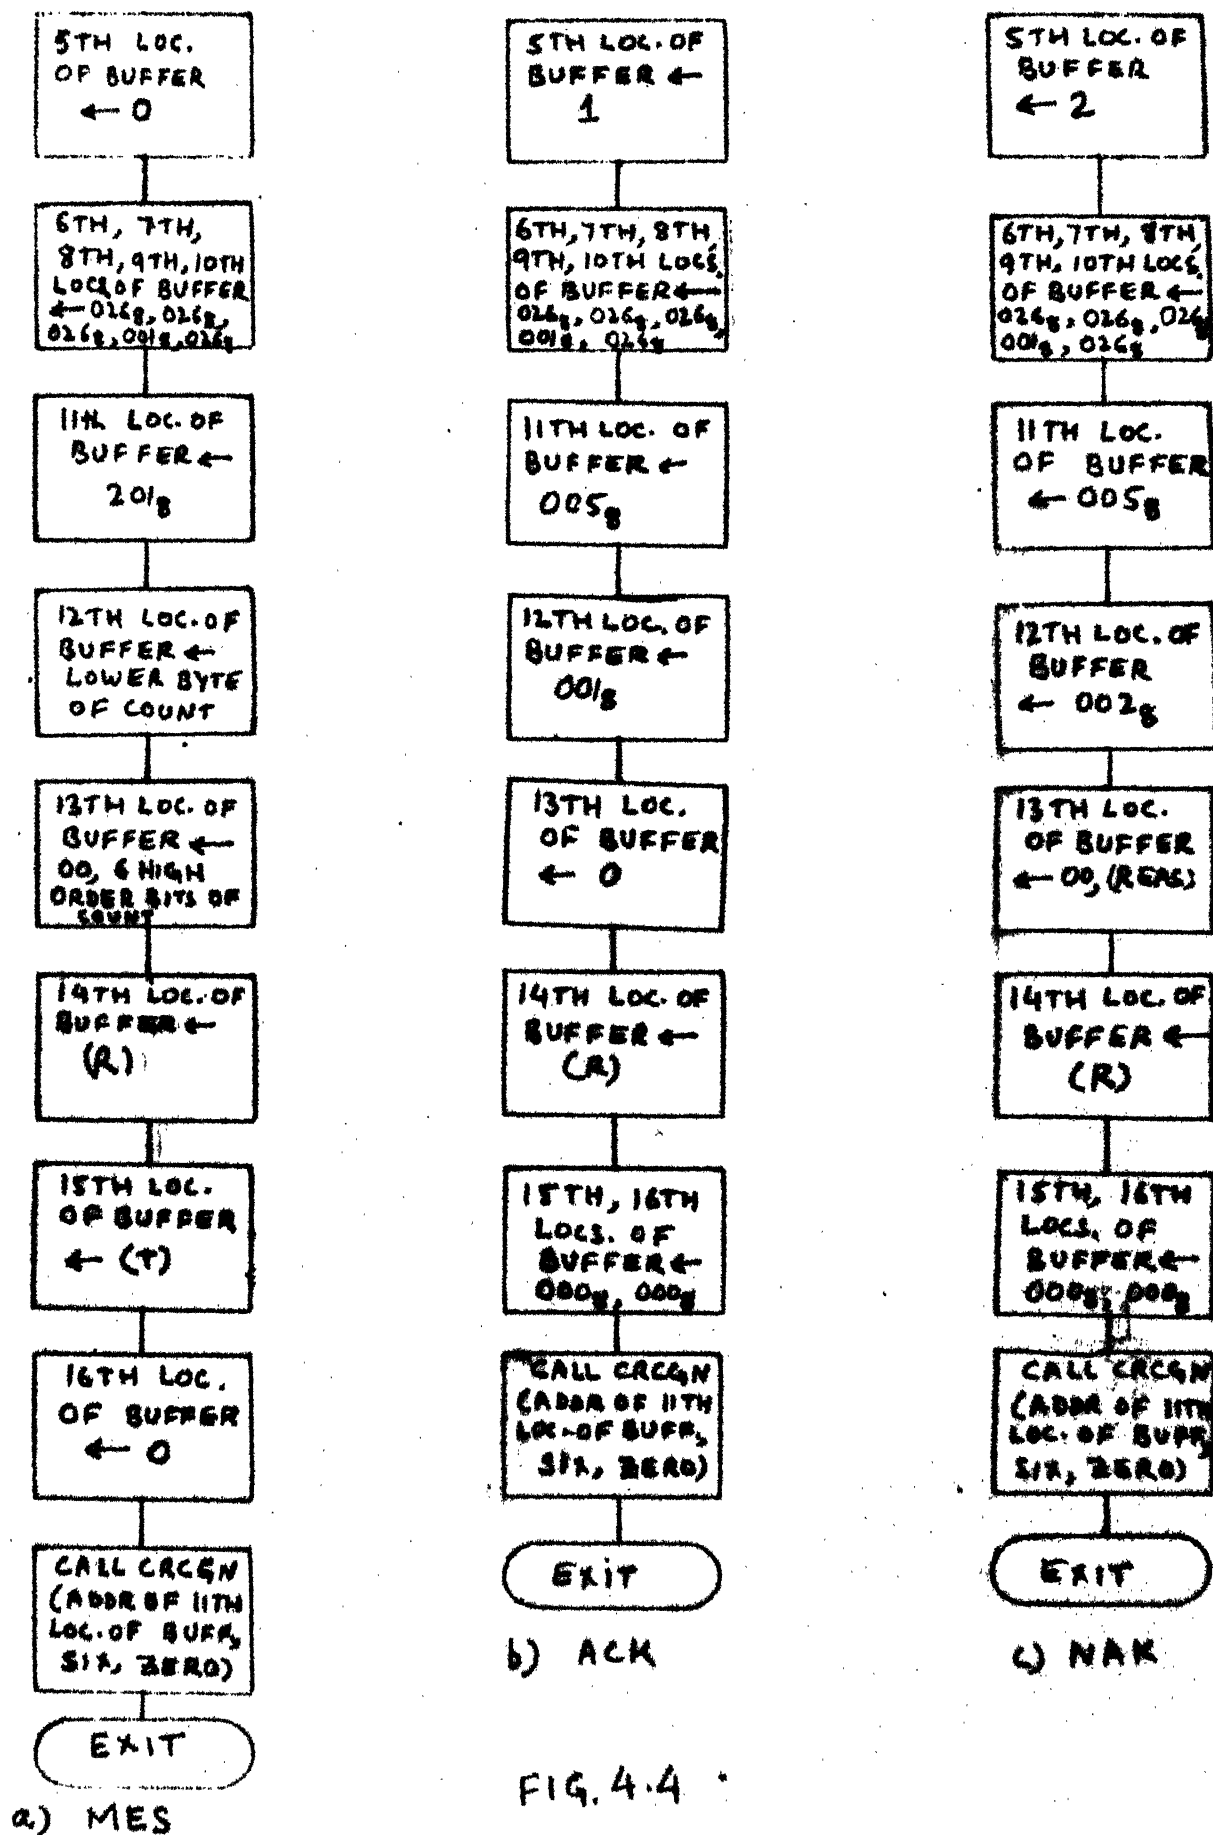 5TH LOC.
OF BUFFER
← 0
6TH, 7TH,
8TH, 9TH, 10TH
LOCS OF BUFFER
← 026₈, 026₈,
026₈, 001₈, 026₈
11th LOC. OF
BUFFER ←
201₈
12TH LOC. OF
BUFFER ←
LOWER BYTE
OF COUNT
13TH LOC. OF
BUFFER ←
00, 6 HIGH
ORDER BITS OF
COUNT
14TH LOC. OF
BUFFER ←
(R)
15TH LOC.
OF BUFFER
← (T)
16TH LOC.
OF BUFFER
← 0
CALL CRCGN
(ADDR OF 11TH
LOC. OF BUFF,
SIX, ZERO)
EXIT
a) MES
5TH LOC. OF
BUFFER ←
1
6TH, 7TH, 8TH,
9TH, 10TH LOCS.
OF BUFFER ←
026₈, 026₈, 026₈,
001₈, 026₈
11TH LOC. OF
BUFFER ←
005₈
12TH LOC. OF
BUFFER ←
001₈
13TH LOC.
OF BUFFER
← 0
14TH LOC. OF
BUFFER ←
(R)
15TH, 16TH
LOCS. OF
BUFFER ←
000₈, 000₈
CALL CRCGN
(ADDR OF 11TH
LOC. OF BUFF,
SIX, ZERO)
EXIT
b) ACK
5TH LOC. OF
BUFFER
← 2
6TH, 7TH, 8TH,
9TH, 10TH LOCS.
OF BUFFER ←
026₈, 026₈, 026₈
001₈, 026₈
11TH LOC.
OF BUFFER
← 005₈
12TH LOC. OF
BUFFER
← 002₈
13TH LOC.
OF BUFFER
← 00, (REAS)
14TH LOC. OF
BUFFER ←
(R)
15TH, 16TH
LOCS. OF
BUFFER ←
000₈, 000₈
CALL CRCGN
(ADDR OF 11TH
LOC. OF BUFF,
SIX, ZERO)
EXIT
c) NAK
FIG. 4.4